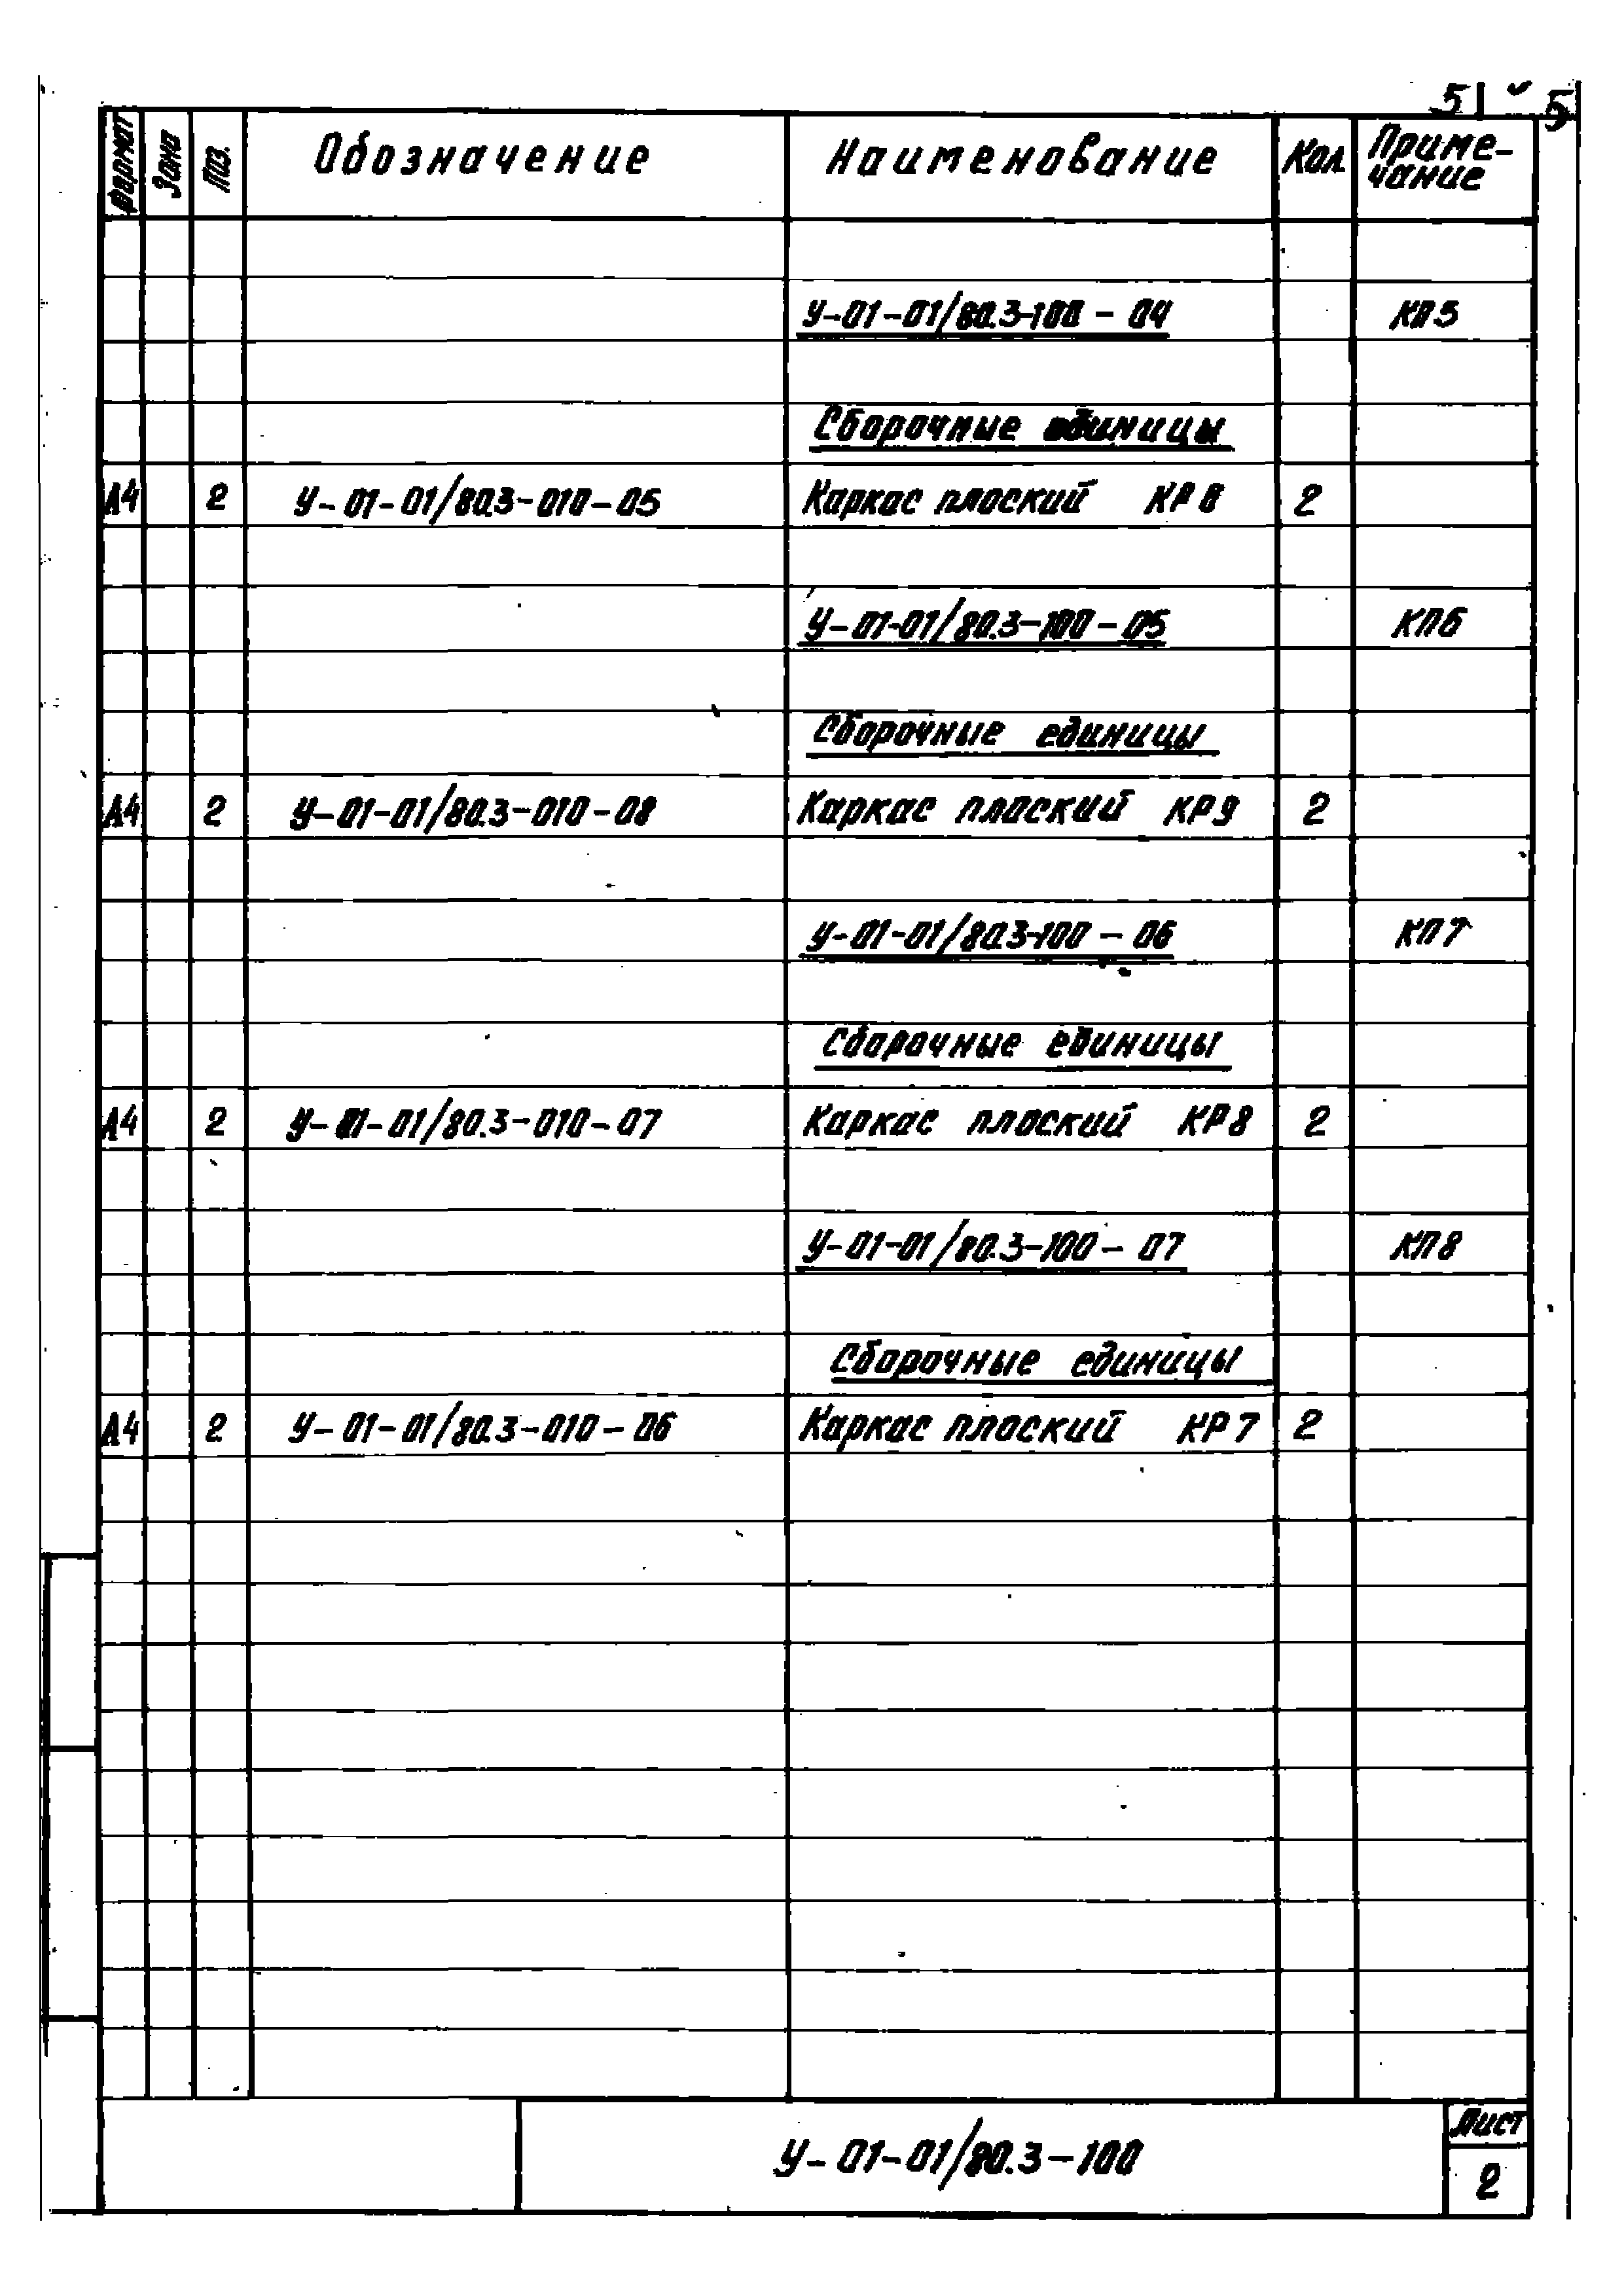 5 5
Формат Зона Поз. Обозначение Наименование Кол. Приме-
чание
У-01-01/80.3-100-04 КП5
Сборочные единицы
А4 2 У-01-01/80.3-010-05 Каркас плоский КР 2
У-01-01/80.3-100-05 КП6
Сборочные единицы
А4 2 У-01-01/80.3-010-08 Каркас плоский КР9 2
У-01-01/80.3-100-06 КП7
Сборочные единицы
А4 2 У-01-01/80.3-010-07 Каркас плоский КР8 2
У-01-01/80.3-100-07 КП8
Сборочные единицы
А4 2 У-01-01/80.3-010-06 Каркас плоский КР7 2
У-01-01/80.3-100
Лист
2